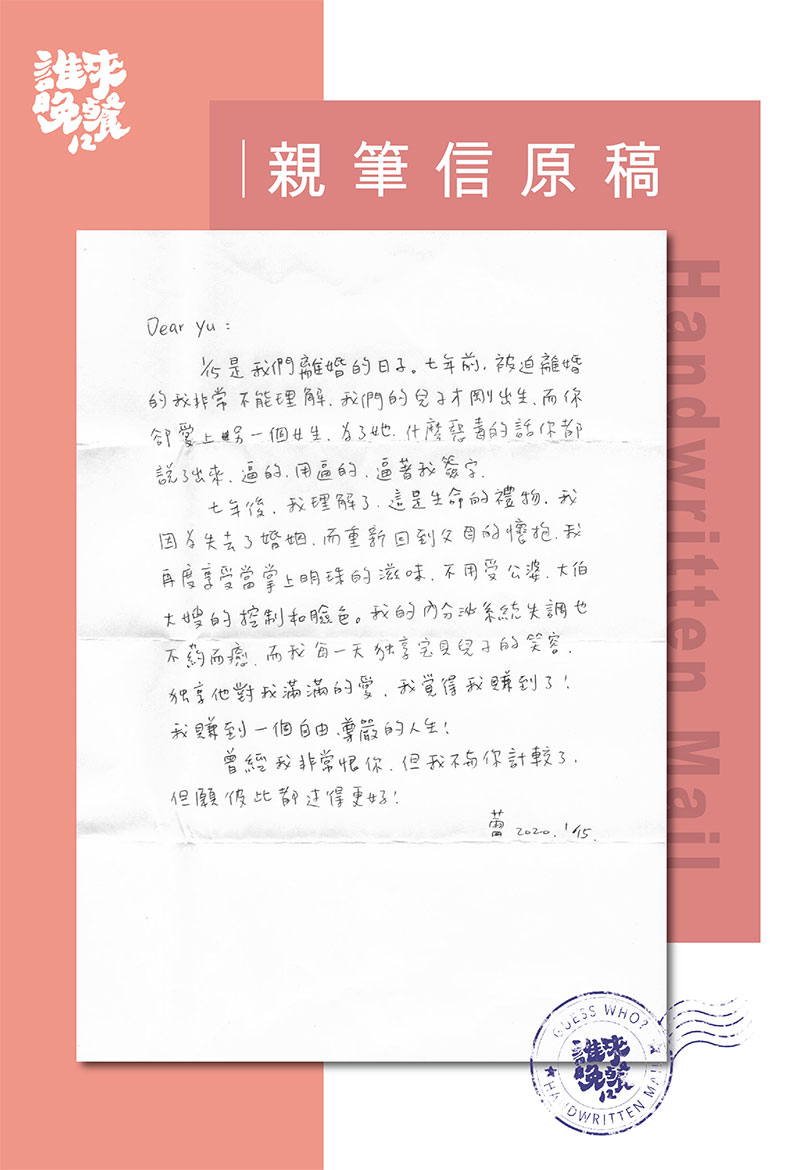 誰來
晚餐
12
親筆信原稿
Handwritten Mail
Dear Yu：
1/15是我們離婚的日子。七年前，被迫離婚
的我非常不能理解，我們的兒子才剛出生，而你
卻愛上另一個女生，為了她，什麼惡毒的話你都
說了出來，逼的，用逼的，逼著我簽字。
七年後，我理解了，這是生命的禮物，我
因為失去了婚姻，而重新回到父母的懷抱，我
再度享受當掌上明珠的滋味，不用受公婆、大伯
大嫂的控制和臉色。我的內分泌系統失調也
不葯而癒，而我每一天獨享宝貝兒子的笑容，
獨享他對我滿滿的愛，我覺得我賺到了！
我賺到一個自由、尊嚴的人生！
曾經我非常恨你，但我不與你計較了，
但願彼此都過得更好！
蕾 2020. 1/15.
GUESS WHO?
誰來
晚餐
12
HANDWRITTEN MAIL